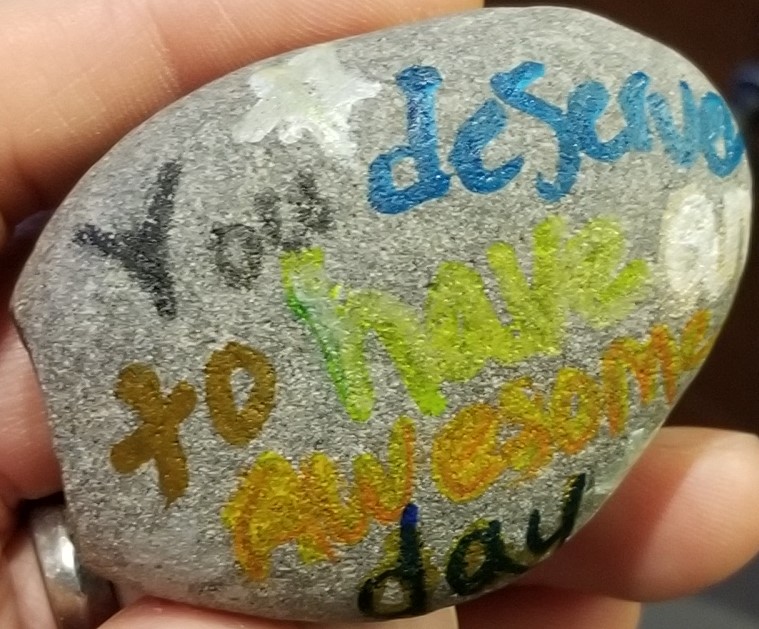 You deserve
to have a
Awesome
day